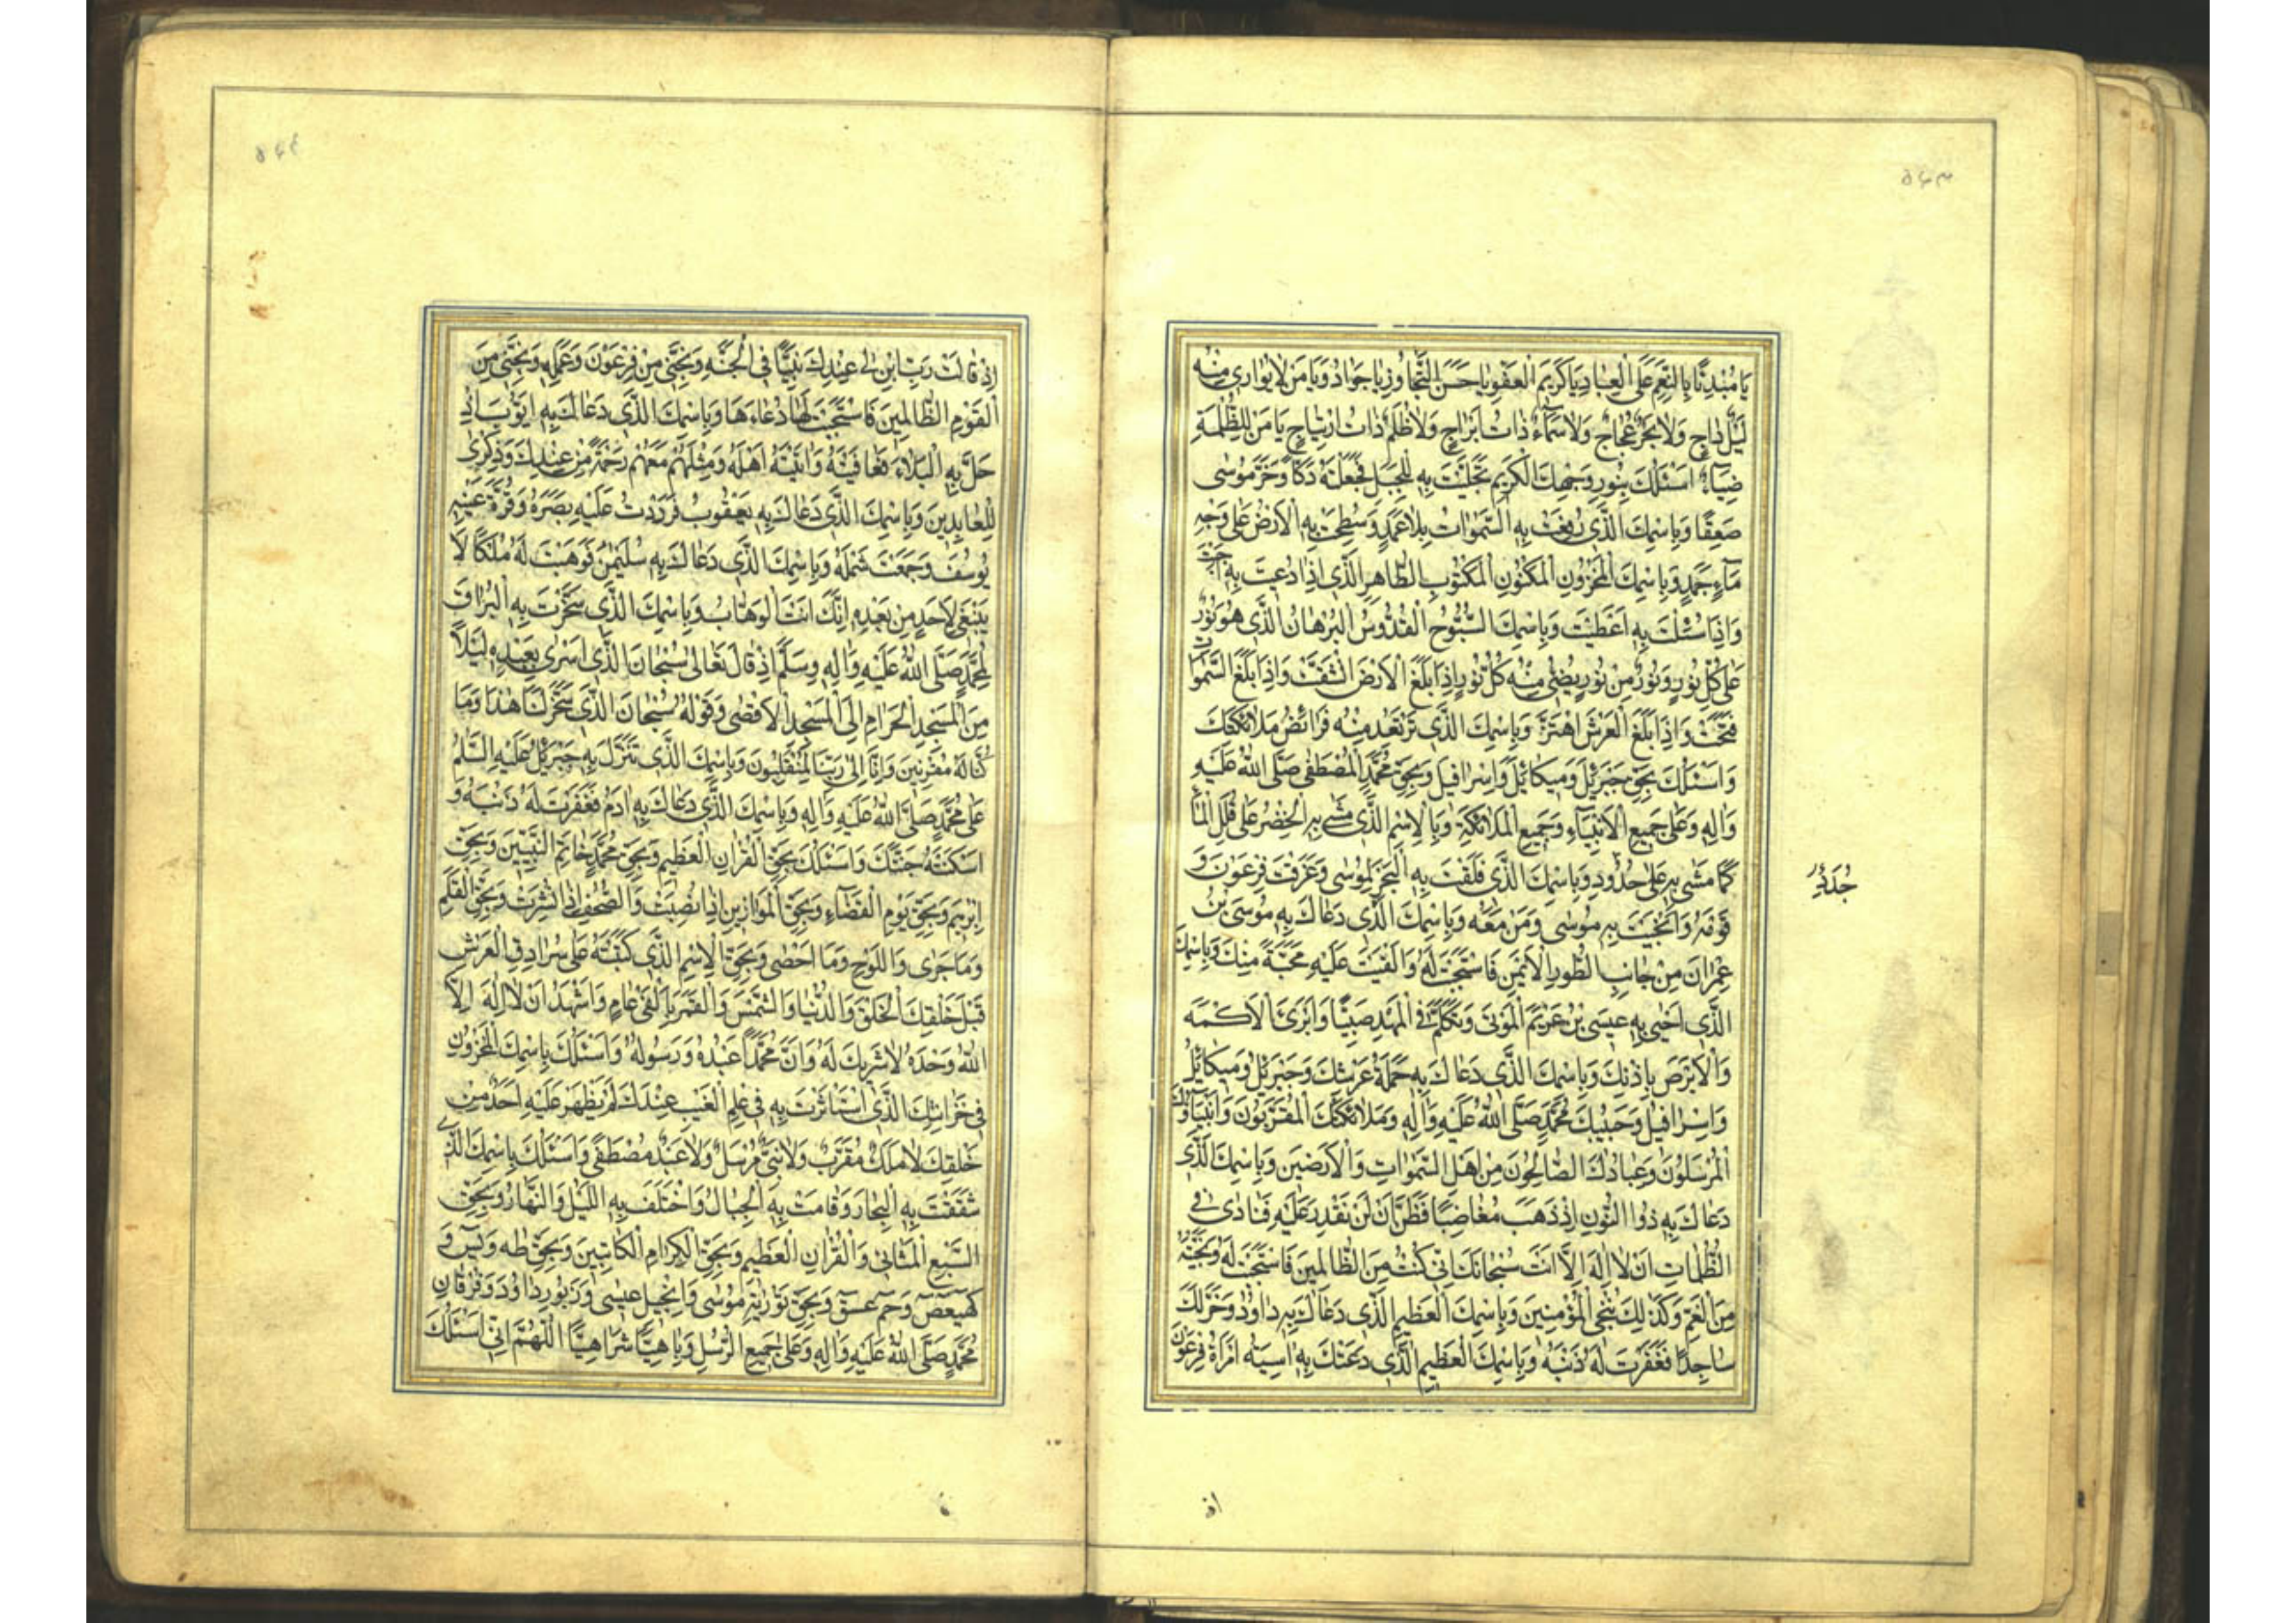 ۵۴۳
يَا مُبْدِئًا بِالنِّعَمِ عَلَى الْعِبَادِ يَا كَرِيمَ الْعَفْوِ يَا حَسَنَ التَّجَاوُزِ يَا جَوَادُ وَيَا مَنْ لَا يُوَارِي مِنْهُ
لَيْلٌ دَاجٍ وَلَا بَحْرٌ عَجَّاجٌ وَلَا سَمَاءٌ ذَاتُ اَبْرَاجٍ وَلَا ظُلَمٌ ذَاتُ ارْتِيَاجٍ يَا مَنِ الظُّلْمَةِ
ضِيَاءٌ اَسْئَلُكَ بِنُورِ وَجْهِكَ الْكَرِيمِ تَجَلَّيْتَ بِهِ لِلْجَبَلِ فَجَعَلْتَهُ دَكًّا وَخَرَّ مُوسَى
صَعِقًا وَبِاسْمِكَ الَّذِي رَفَعْتَ بِهِ السَّمٰوَاتِ بِلَا عَمَدٍ وَسَطَحْتَ بِهِ الْاَرْضَ عَلٰى وَجْهِ
مَاءٍ جَمَدٍ وَبِاسْمِكَ الْمَخْزُونِ الْمَكْنُونِ الْمَكْتُوبِ الطَّاهِرِ الَّذِي اِذَا دُعِيتَ بِهِ اَجَبْتَ
وَاِذَا سُئِلْتَ بِهِ اَعْطَيْتَ وَبِاسْمِكَ السُّبُّوحِ الْقُدُّوسِ الْبُرْهَانِ الَّذِي هُوَ نُورٌ
عَلٰى كُلِّ نُورٍ وَنُورٌ مِنْ نُورٍ يُضِيءُ مِنْهُ كُلُّ نُورٍ اِذَا بَلَغَ الْاَرْضَ انْشَقَّتْ وَاِذَا بَلَغَ السَّمٰوَاتِ
فُتِحَتْ وَاِذَا بَلَغَ الْعَرْشَ اهْتَزَّ وَبِاسْمِكَ الَّذِي تَرْتَعِدُ مِنْهُ فَرَائِصُ مَلَائِكَتِكَ
وَاَسْئَلُكَ بِحَقِّ جَبْرَئِيلَ وَمِيكَائِيلَ وَاِسْرَافِيلَ وَبِحَقِّ مُحَمَّدٍ الْمُصْطَفٰى صَلَّى اللهُ عَلَيْهِ
وَاٰلِهِ وَعَلٰى جَمِيعِ الْاَنْبِيَاءِ وَجَمِيعِ الْمَلَائِكَةِ وَبِالْاِسْمِ الَّذِي مَشٰى بِهِ الْخِضْرُ عَلٰى قُلَلِ الْمَاءِ
كَمَا مَشٰى بِهِ عَلٰى حُدُودِ وَبِاسْمِكَ الَّذِي فَلَقْتَ بِهِ الْبَحْرَ لِمُوسٰى وَغَرَّقْتَ فِرْعَوْنَ وَ
قَوْمَهُ وَاَنْجَيْتَ بِهِ مُوسٰى وَمَنْ مَعَهُ وَبِاسْمِكَ الَّذِي دَعَاكَ بِهِ مُوسَى بْنُ
عِمْرَانَ مِنْ جَانِبِ الطُّورِ الْاَيْمَنِ فَاسْتَجَبْتَ لَهُ وَاَلْقَيْتَ عَلَيْهِ مَحَبَّةً مِنْكَ وَبِاسْمِكَ
الَّذِي اَحْيٰى بِهِ عِيسَى بْنُ مَرْيَمَ الْمَوْتٰى وَتَكَلَّمَ فِي الْمَهْدِ صَبِيًّا وَاَبْرَئَ الْاَكْمَهَ
وَالْاَبْرَصَ بِاِذْنِكَ وَبِاسْمِكَ الَّذِي دَعَاكَ بِهِ حَمَلَةُ عَرْشِكَ وَجَبْرَئِيلُ وَمِيكَائِيلُ
وَاِسْرَافِيلُ وَحَبِيبُكَ مُحَمَّدٌ صَلَّى اللهُ عَلَيْهِ وَاٰلِهِ وَمَلَائِكَتُكَ الْمُقَرَّبُونَ وَاَنْبِيَاؤُكَ
الْمُرْسَلُونَ وَعِبَادُكَ الصَّالِحُونَ مِنْ اَهْلِ السَّمٰوَاتِ وَالْاَرَضِينَ وَبِاسْمِكَ الَّذِي
دَعَاكَ بِهِ ذُوا النُّونِ اِذْ ذَهَبَ مُغَاضِبًا فَظَنَّ اَنْ لَنْ نَقْدِرَ عَلَيْهِ فَنَادٰى فِي
الظُّلُمَاتِ اَنْ لَا اِلٰهَ اِلَّا اَنْتَ سُبْحَانَكَ اِنِّي كُنْتُ مِنَ الظَّالِمِينَ فَاسْتَجَبْتَ لَهُ وَنَجَّيْتَهُ
مِنَ الْغَمِّ وَكَذٰلِكَ نُنْجِي الْمُؤْمِنِينَ وَبِاسْمِكَ الْعَظِيمِ الَّذِي دَعَاكَ بِهِ دَاوُدُ وَخَرَّ لَكَ
سَاجِدًا فَغَفَرْتَ لَهُ ذَنْبَهُ وَبِاسْمِكَ الْعَظِيمِ الَّذِي دَعَتْكَ بِهِ اٰسِيَةُ امْرَاَةُ فِرْعَوْنَ
اذ
۵۴۴
اِذْ قَالَتْ رَبِّ ابْنِ لِي عِنْدَكَ بَيْتًا فِي الْجَنَّةِ وَنَجِّنِي مِنْ فِرْعَوْنَ وَعَمَلِهِ وَنَجِّنِي مِنَ
الْقَوْمِ الظَّالِمِينَ فَاسْتَجَبْتَ لَهَا دُعَاءَهَا وَبِاسْمِكَ الَّذِي دَعَاكَ بِهِ اَيُّوبُ اِذْ
حَلَّ بِهِ الْبَلَاءُ فَعَافَيْتَهُ وَاٰتَيْتَهُ اَهْلَهُ وَمِثْلَهُمْ مَعَهُمْ رَحْمَةً مِنْ عِنْدِكَ وَذِكْرٰى
لِلْعَابِدِينَ وَبِاسْمِكَ الَّذِي دَعَاكَ بِهِ يَعْقُوبُ فَرَدَدْتَ عَلَيْهِ بَصَرَهُ وَقُرَّةَ عَيْنِهِ
يُوسُفَ وَجَمَعْتَ شَمْلَهُ وَبِاسْمِكَ الَّذِي دَعَاكَ بِهِ سُلَيْمٰنُ فَوَهَبْتَ لَهُ مُلْكًا لَا
يَنْبَغِي لِاَحَدٍ مِنْ بَعْدِهِ اِنَّكَ اَنْتَ الْوَهَّابُ وَبِاسْمِكَ الَّذِي سَخَّرْتَ بِهِ الْبُرَاقَ
لِمُحَمَّدٍ صَلَّى اللهُ عَلَيْهِ وَاٰلِهِ وَسَلَّمَ اِذْ قَالَ تَعَالٰى سُبْحَانَ الَّذِي اَسْرٰى بِعَبْدِهِ لَيْلًا
مِنَ الْمَسْجِدِ الْحَرَامِ اِلَى الْمَسْجِدِ الْاَقْصٰى وَقَوْلُهُ سُبْحَانَ الَّذِي سَخَّرَ لَنَا هٰذَا وَمَا
كُنَّا لَهُ مُقْرِنِينَ وَاِنَّا اِلٰى رَبِّنَا لَمُنْقَلِبُونَ وَبِاسْمِكَ الَّذِي تَنَزَّلَ بِهِ جَبْرَئِيلُ عَلَيْهِ السَّلٰمُ
عَلٰى مُحَمَّدٍ صَلَّى اللهُ عَلَيْهِ وَاٰلِهِ وَبِاسْمِكَ الَّذِي دَعَاكَ بِهِ اٰدَمُ فَغَفَرْتَ لَهُ ذَنْبَهُ وَ
اَسْكَنْتَهُ جَنَّتَكَ وَاَسْئَلُكَ بِحَقِّ الْقُرْاٰنِ الْعَظِيمِ وَبِحَقِّ مُحَمَّدٍ خَاتَمِ النَّبِيِّينَ وَبِحَقِّ
اِبْرٰهِيمَ وَبِحَقِّ يَوْمِ الْقَضَاءِ وَبِحَقِّ الْمَوَازِينِ اِذَا نُصِبَتْ وَالصُّحُفِ اِذَا نُشِرَتْ وَبِحَقِّ الْقَلَمِ
وَمَا جَرٰى وَاللَّوْحِ وَمَا اَحْصٰى وَبِحَقِّ الْاِسْمِ الَّذِي كَتَبْتَهُ عَلٰى سُرَادِقِ الْعَرْشِ
قَبْلَ خَلْقِكَ الْخَلْقَ وَالدُّنْيَا وَالشَّمْسَ وَالْقَمَرَ بِاَلْفَيْ عَامٍ وَاَشْهَدُ اَنْ لَا اِلٰهَ اِلَّا
اللهُ وَحْدَهُ لَا شَرِيكَ لَهُ وَاَنَّ مُحَمَّدًا عَبْدُهُ وَرَسُولُهُ وَاَسْئَلُكَ بِاسْمِكَ الْمَخْزُونِ
فِي خَزَائِنِكَ الَّذِي اسْتَأْثَرْتَ بِهِ فِي عِلْمِ الْغَيْبِ عِنْدَكَ لَمْ يَظْهَرْ عَلَيْهِ اَحَدٌ مِنْ
خَلْقِكَ لَا مَلَكٌ مُقَرَّبٌ وَلَا نَبِيٌّ مُرْسَلٌ وَلَا عَبْدٌ مُصْطَفًى وَاَسْئَلُكَ بِاسْمِكَ الَّذِي
شَقَقْتَ بِهِ الْبِحَارَ وَقَامَتْ بِهِ الْجِبَالُ وَاخْتَلَفَ بِهِ اللَّيْلُ وَالنَّهَارُ وَبِحَقِّ
السَّبْعِ الْمَثَانِي وَالْقُرْاٰنِ الْعَظِيمِ وَبِحَقِّ الْكِرَامِ الْكَاتِبِينَ وَبِحَقِّ طٰهٰ وَيٰسٓ وَ
كٓهٰيٰعٓصٓ وَحٰمٓعٓسٓقٓ وَبِحَقِّ تَوْرٰيةِ مُوسٰى وَاِنْجِيلِ عِيسٰى وَزَبُورِ دَاوُدَ وَفُرْقَانِ
مُحَمَّدٍ صَلَّى اللهُ عَلَيْهِ وَاٰلِهِ وَعَلٰى جَمِيعِ الرُّسُلِ وَبِاهِيًّا شَرَاهِيًّا اَللّٰهُمَّ اِنِّي اَسْئَلُكَ